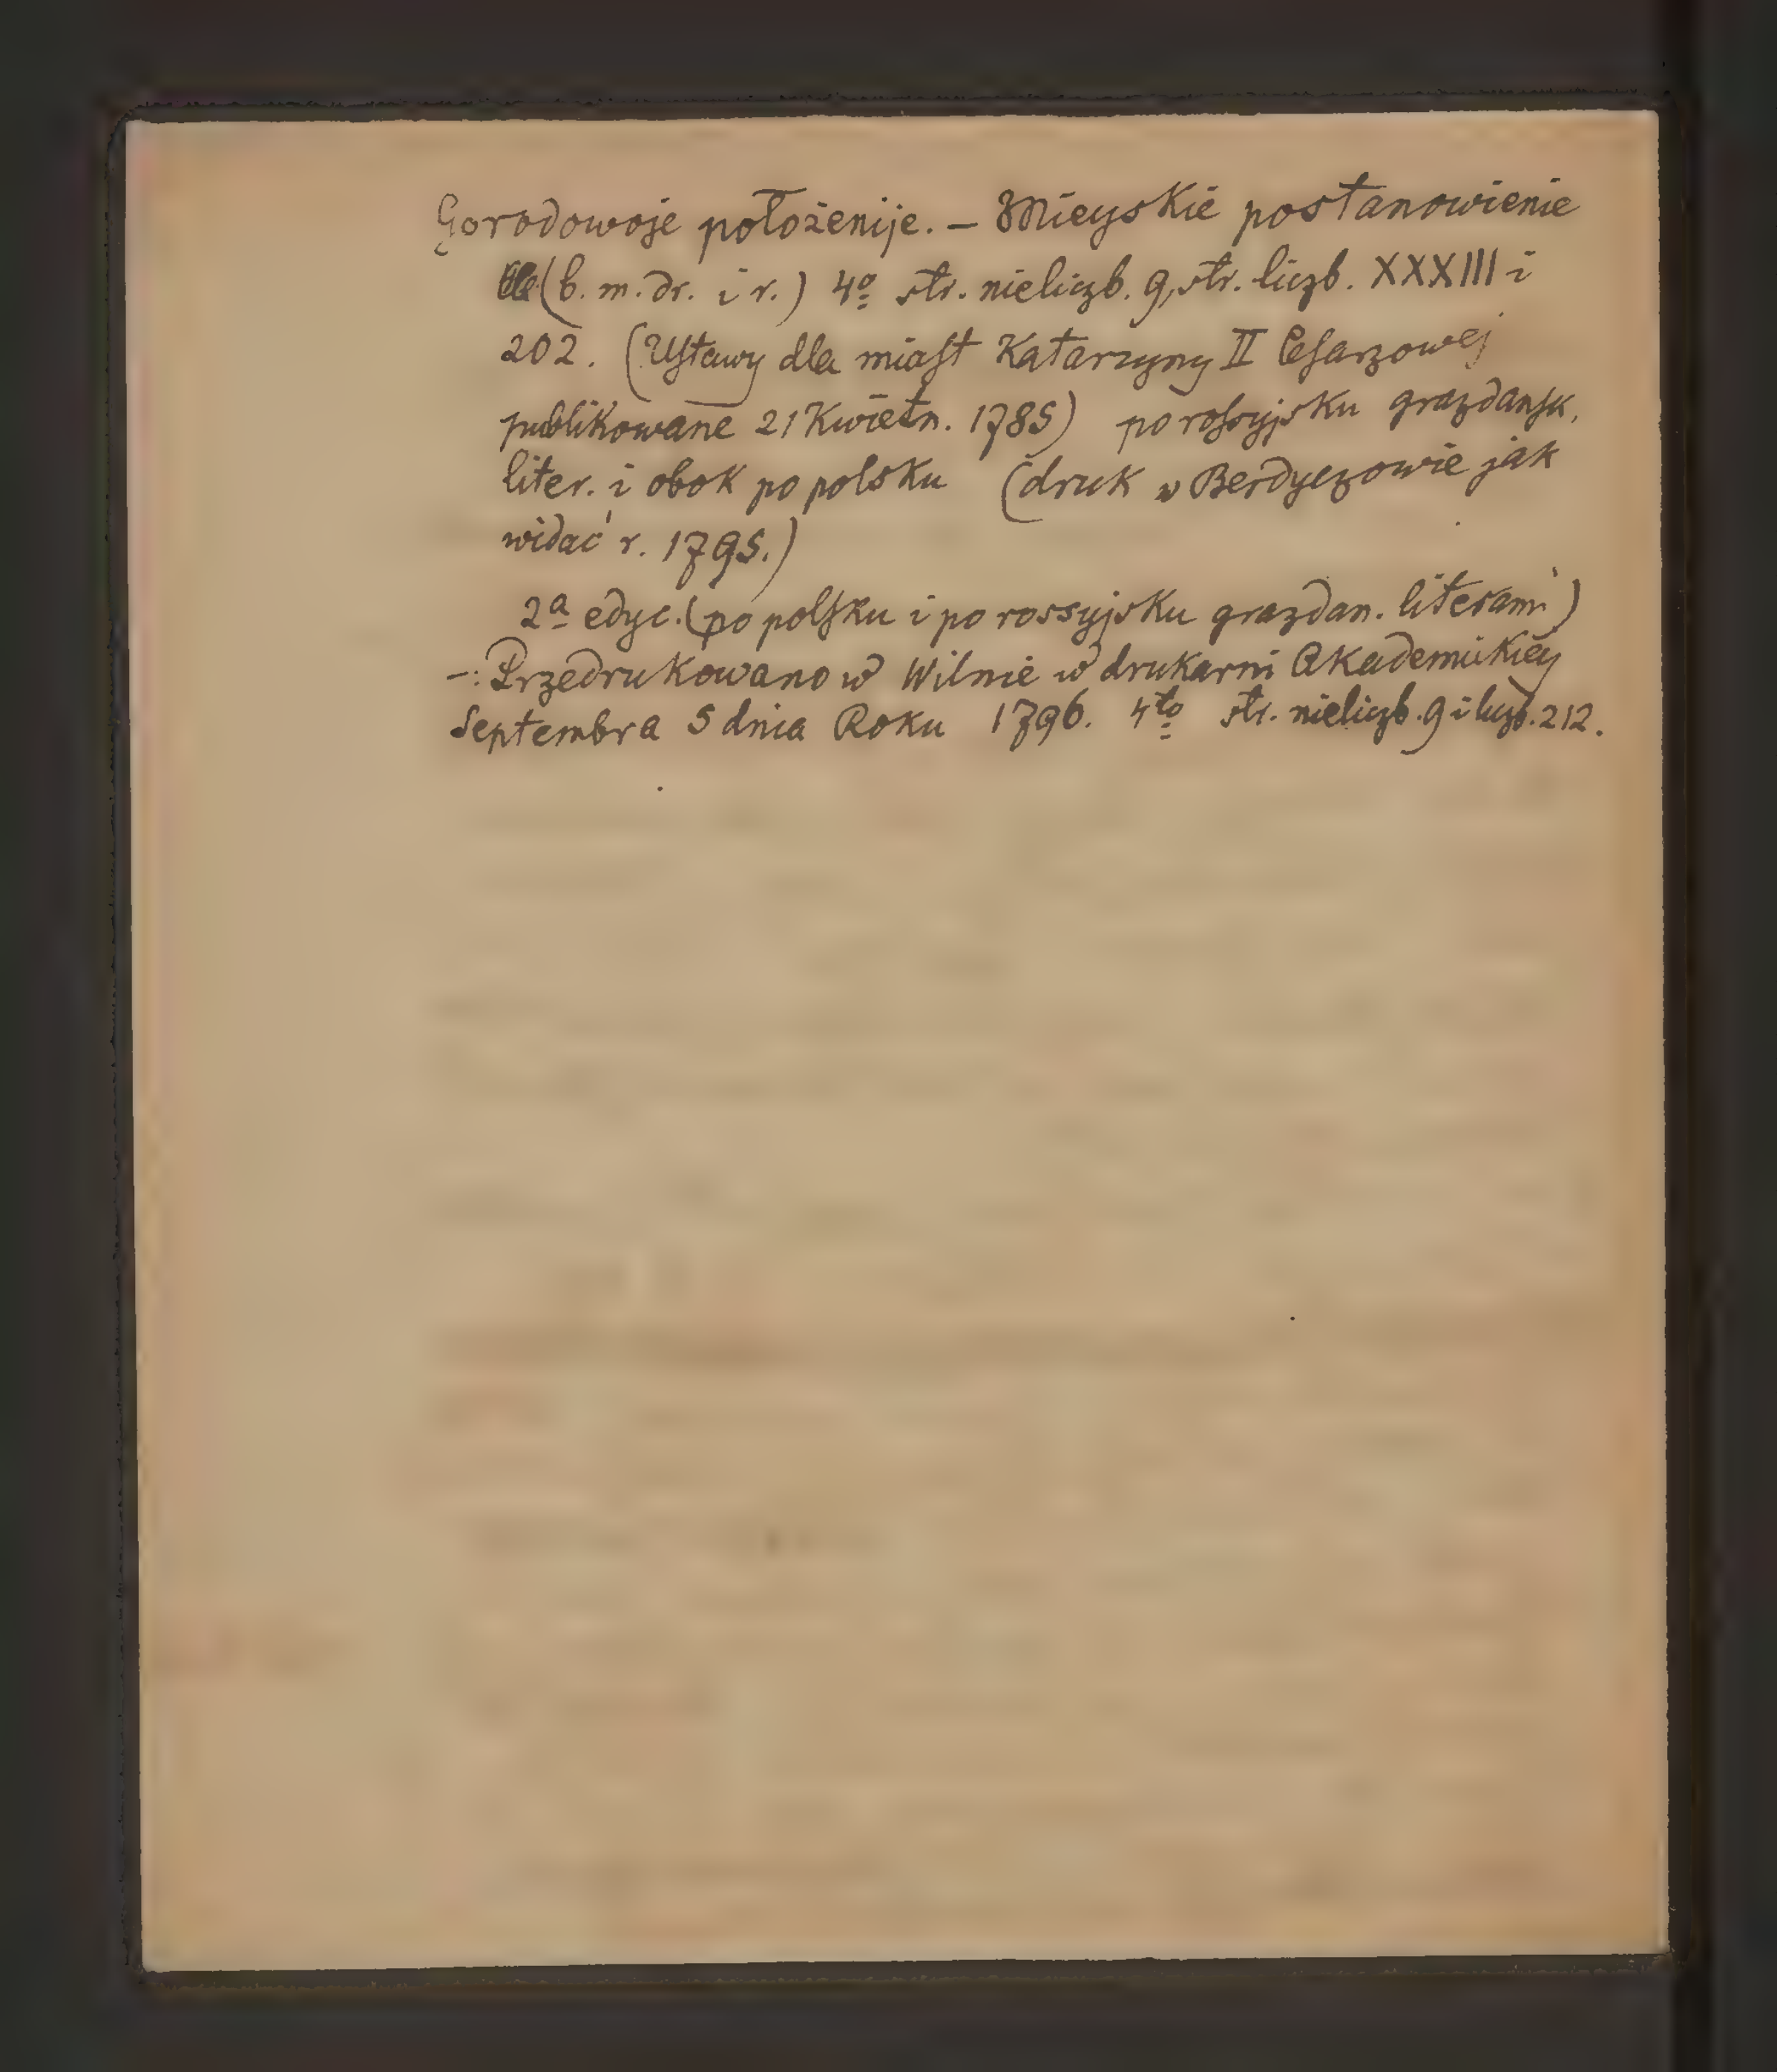 Gorodowoje położenije. – Mieyskie postanowienie
(b. m. dr. i r.) 4º str. nieliczb. 9, str. liczb. XXXIII i
202. (Ustawy dla miast Katarzyny II Cesarzowej
publikowane 21 Kwietn. 1785) po rossyjsku grazdansk.
liter. i obok po polsku (druk w Berdyczowie jak
widać r. 1795.)
2ª edyc. (po polsku i po rossyjsku grazdan. literami)
–: Przedrukowano w Wilnie w drukarni Akademickiey
Septembra 5 dnia Roku 1796. 4to str. nieliczb. 9 i liczb. 212.